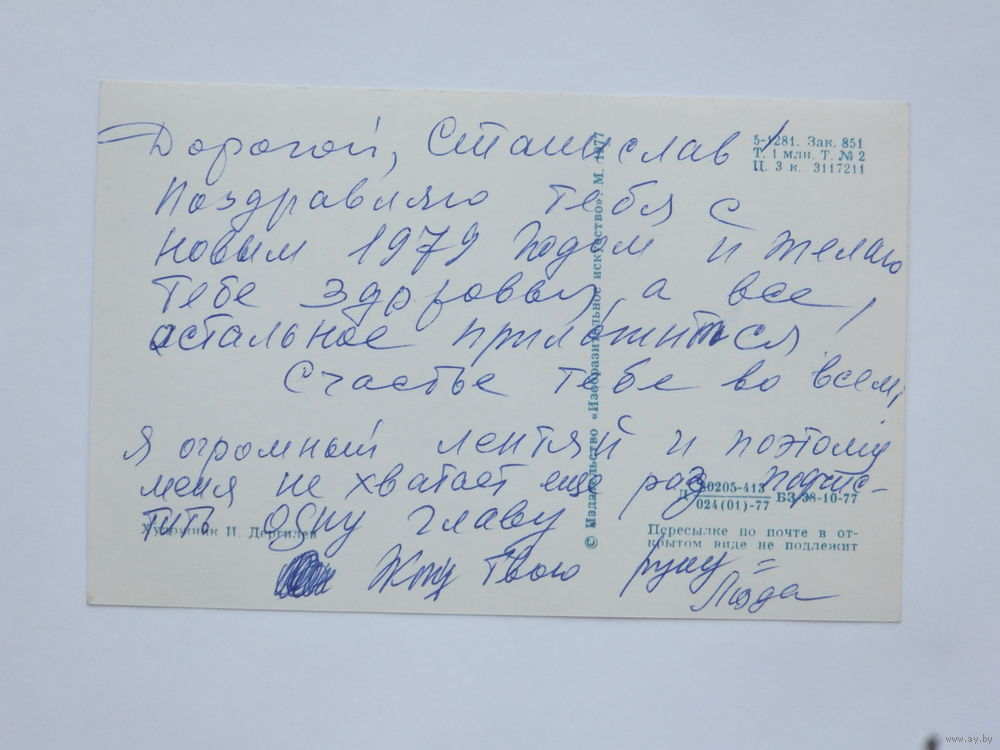 Дорогой, Станислав!
Поздравляю тебя с
новым 1979 годом и желаю
тебе здоровья, а все,
остальное приложиться
Счастье тебе во всем,
Я огромный лентяй и поэтому
меня не хватает еще раз
одну главу
Жму твою руку =
Люда
5-1281. Зак. 851
Т. 1 млн. Т. № 2
Ц. 3 к. 3117211
© Издательство «Изобразительное искусство» М. 1977
Д 80205-413
024(01)-77 БЗ-98-10-77
Пересылке по почте в от-
крытом виде не подлежит
Художник И. Дергилев
www.ay.by